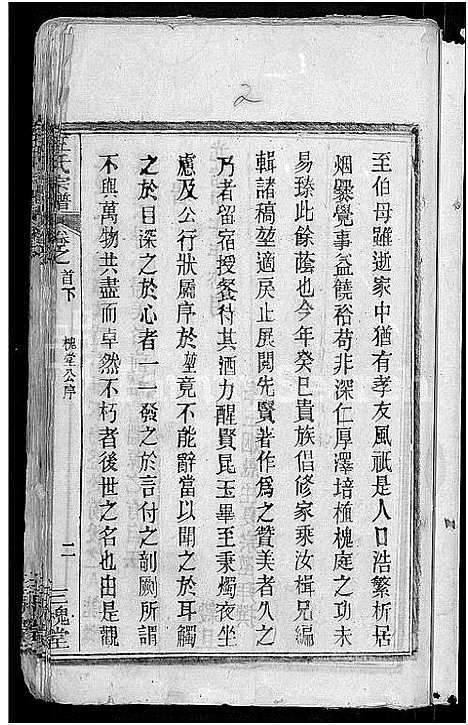 2
至伯母雖逝家中猶有孝友風祇是人口浩繁析居
烟爨覺事益饒裕苟非深仁厚澤培植槐庭之功未
易臻此餘蔭也今年癸巳貴族倡修家乘汝楫兄編
輯諸稿堃適戾止展閱先賢著作爲之贊美者久之
乃者留宿授餐待其酒力醒賢昆玉畢至秉燭夜坐
慮及公行狀屬序於堃竟不能辭當以聞之於耳觸
之於目深之於心者一一發之於言付之剞劂所謂
不與萬物共盡而卓然不朽者後世之名也由是觀
王氏宗譜
卷之首下
槐堂公序
二
三槐堂